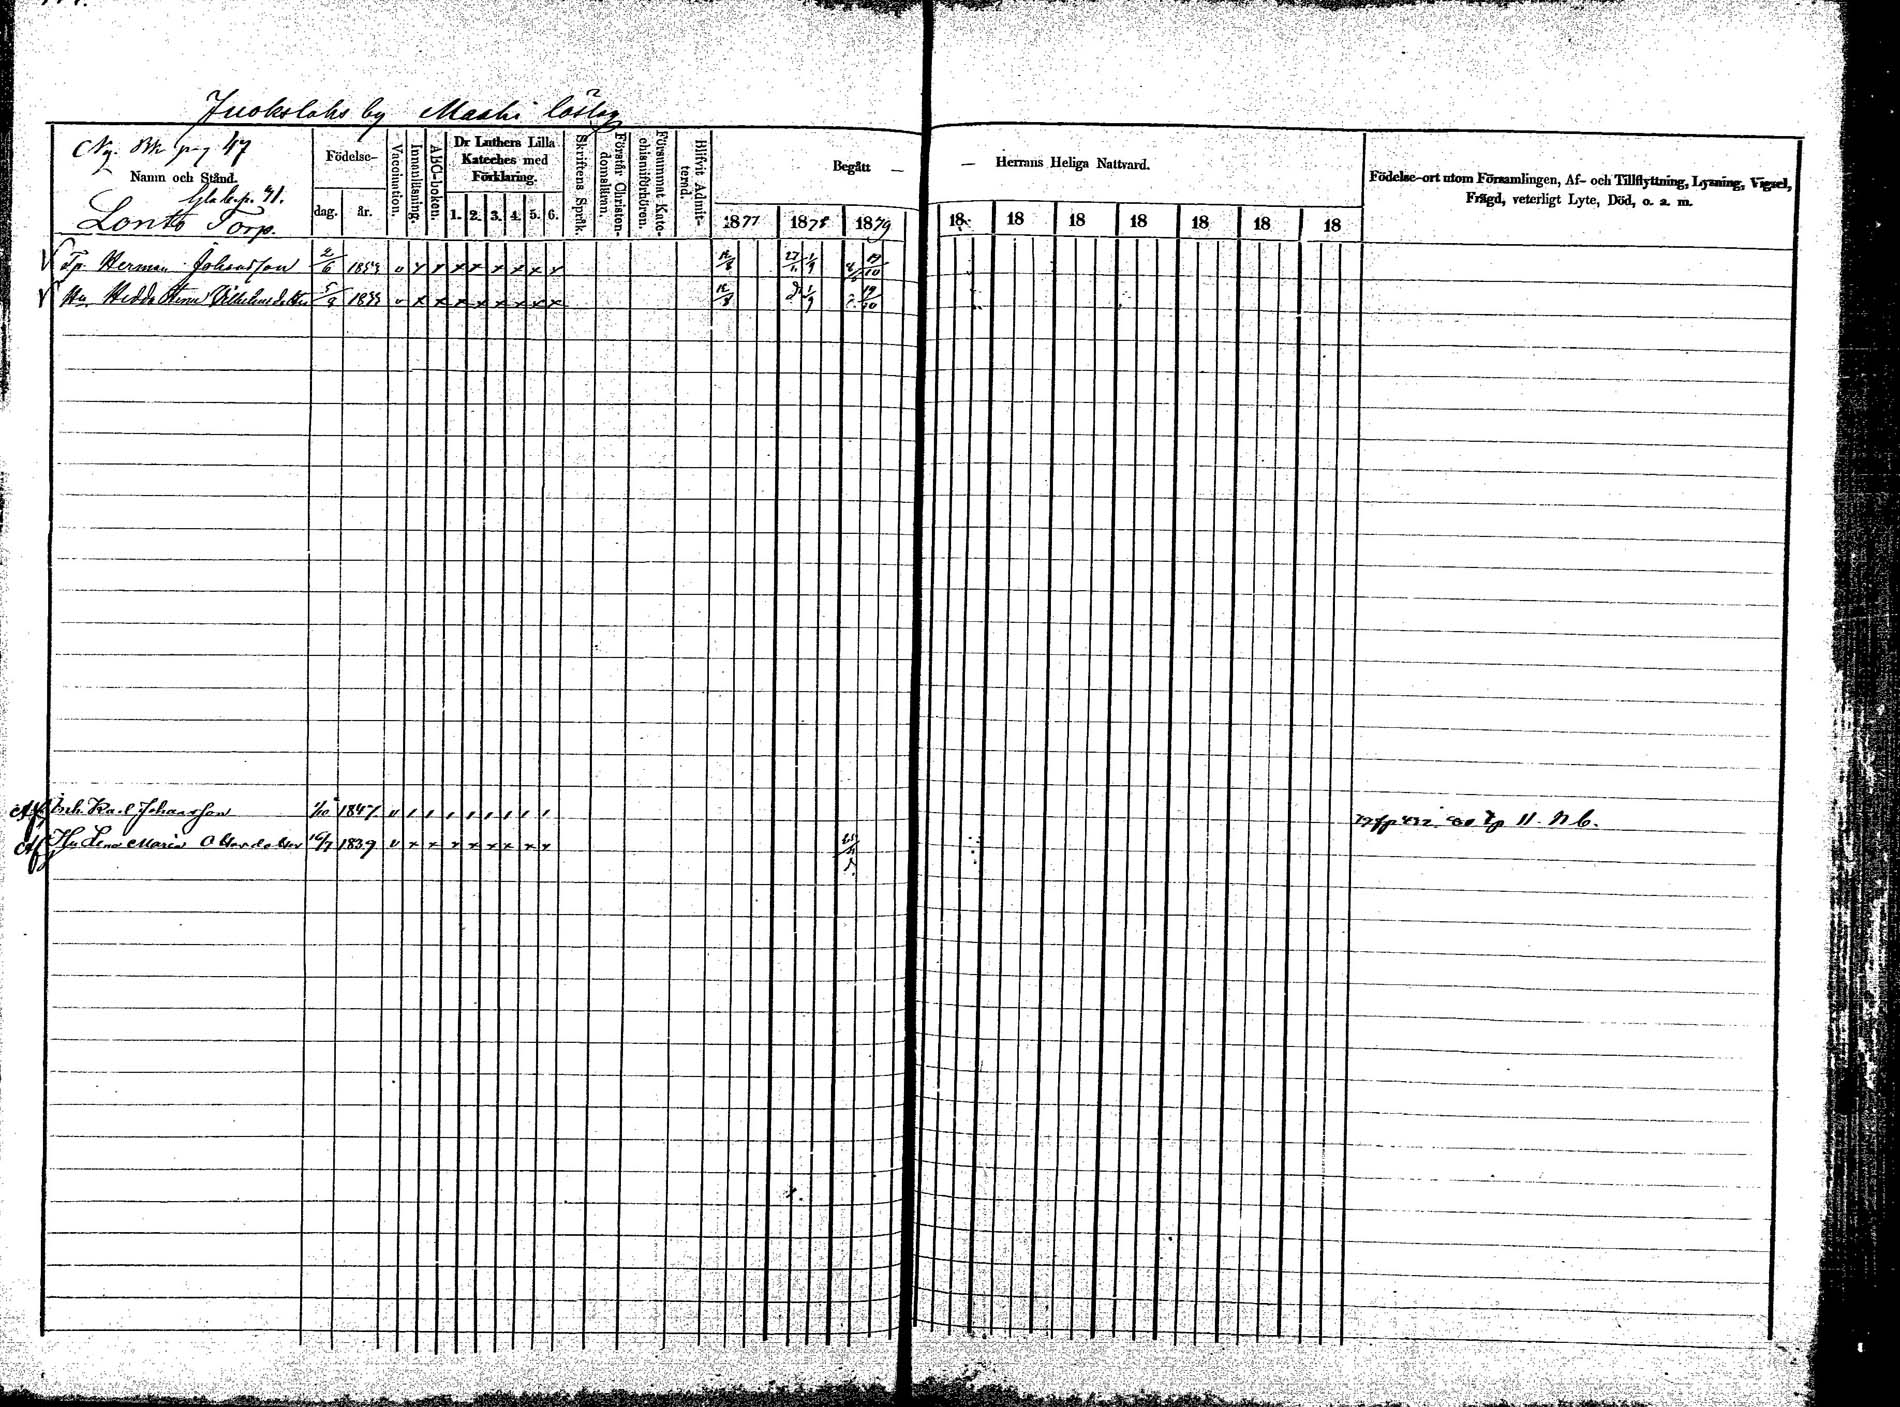 Juokslahs by Maahi
Ny. Bk pag 47
Namn och Stånd.
Gla bk p. 41.
Lontto Torp.
Födelse-
dag. år.
Vaccination.
Innanläsning.
ABC-boken.
Dr Luthers Lilla Kateches med Förklaring.
1. 2. 3. 4. 5. 6.
Skriftens Språk.
Förstår Christendomsläran.
Försummat Katechismiförhören.
Blifvit Admitterad.
Begått — — Herrans Heliga Nattvard.
1877 1878 1879 18 18 18 18 18 18 18
Födelse-ort utom Församlingen, Af- och Tillflyttning, Lysning, Vigsel, Frägd, veterligt Lyte, Död, o. s. m.
V Tp. Herman Johansson 2/6 1853 v x x x x x x x x 12/8 27/11 1/9 19/10
V Hu. Hedda 5/3 1855 v x x x x x x x x 12/8 1/9 19/10
Af Inh. Karl Johansson 1/10 1847 v
Af Hu Lena Maria 16/7 1839 v x x x x x x x x
Tp 11. N b.